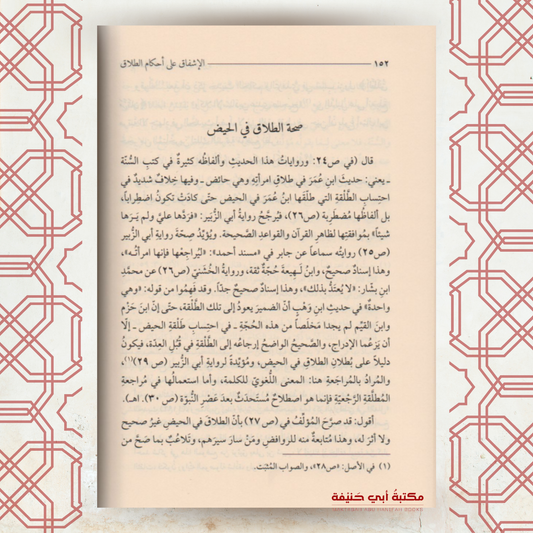 ١٥٢ الإشفاق على أحكام الطلاق
صحة الطلاق في الحيض
قال (في ص٢٤: ورواياتُ هذا الحديثِ وألفاظُه كثيرةٌ في كتبِ السُّنّة
ـ يعني: حديثَ ابنِ عُمَرَ في طلاقِ امرأتِهِ وهي حائض ـ وفيها خِلافٌ شديدٌ في
احتِسابِ الطَّلْقةِ التي طلّقَها ابنُ عُمَرَ في الحيض حتّى كادَتْ تكونُ اضطِراباً،
بل ألفاظُها مُضطرِبة (ص٢٦)، فيُرجَّحُ روايةُ أبي الزُّبير: «فرَدَّها عليَّ ولم يَـرَها
شيئاً» بمُوافقتِها لظاهرِ القرآنِ والقواعدِ الصَّحيحة. ويُؤيِّدُ صِحّةَ روايةِ أبي الزُّبير
(ص٢٥) روايتُه سماعاً عن جابر في «مسند أحمد»: «ليُراجِعْها فإنها امرأتُـه»،
وهذا إسنادٌ صحيحٌ، وابنُ لَـهِيعةَ حُجّةٌ ثقة، وروايةُ الخُشَنيِّ (ص٢٦) عن محمّدِ
ابنِ بشّار: «لا يُعتَدُّ بذلك»، وهذا إسنادٌ صحيحٌ جدّاً. وقد فَهِموا من قوله: «وهي
واحدةٌ» في حديثِ ابنِ وَهْبٍ أنّ الضميرَ يعودُ إلى تلك الطَّلْقة، حتّى إنّ ابنَ حَزْم
وابنَ القيِّم لم يجدا مَخلَصاً من هذه الحُجّةِ ـ في احتِسابِ طَلْقةِ الحيض ـ إلّا
أن يَزعُما الإدراج، والصَّحيحُ الواضحُ إرجاعُه إلى الطَّلْقةِ في قُبُلِ العِدّة، فيكونُ
دليلاً على بُطلانِ الطلاقِ في الحيض، ومُؤيِّدةً لروايةِ أبي الزُّبير (ص ٢٩)(١)،
والمُرادُ بالمُراجَعةِ هنا: المعنى اللُّغويُّ للكلمة، وأما استعمالُها في مُراجعةِ
المُطلَّقةِ الرَّجعيّةِ فإنما هو اصطلاحٌ مُستحدَثٌ بعدَ عَصْرِ النُّبوّة (ص ٣٠). اهـ).
أقول: قد صرَّحَ المُؤلِّفُ في (ص٢٧) بأنّ الطلاقَ في الحيضِ غيرُ صحيح
ولا أثرَ له، وهذا مُتابعةٌ منه للروافضِ ومَنْ سارَ سيرَهم، وتلاعُبٌ بما صَحَّ من
(١) في الأصل: «ص٢٨»، والصواب المُثبَت.
مكتبة أبي حنيفة